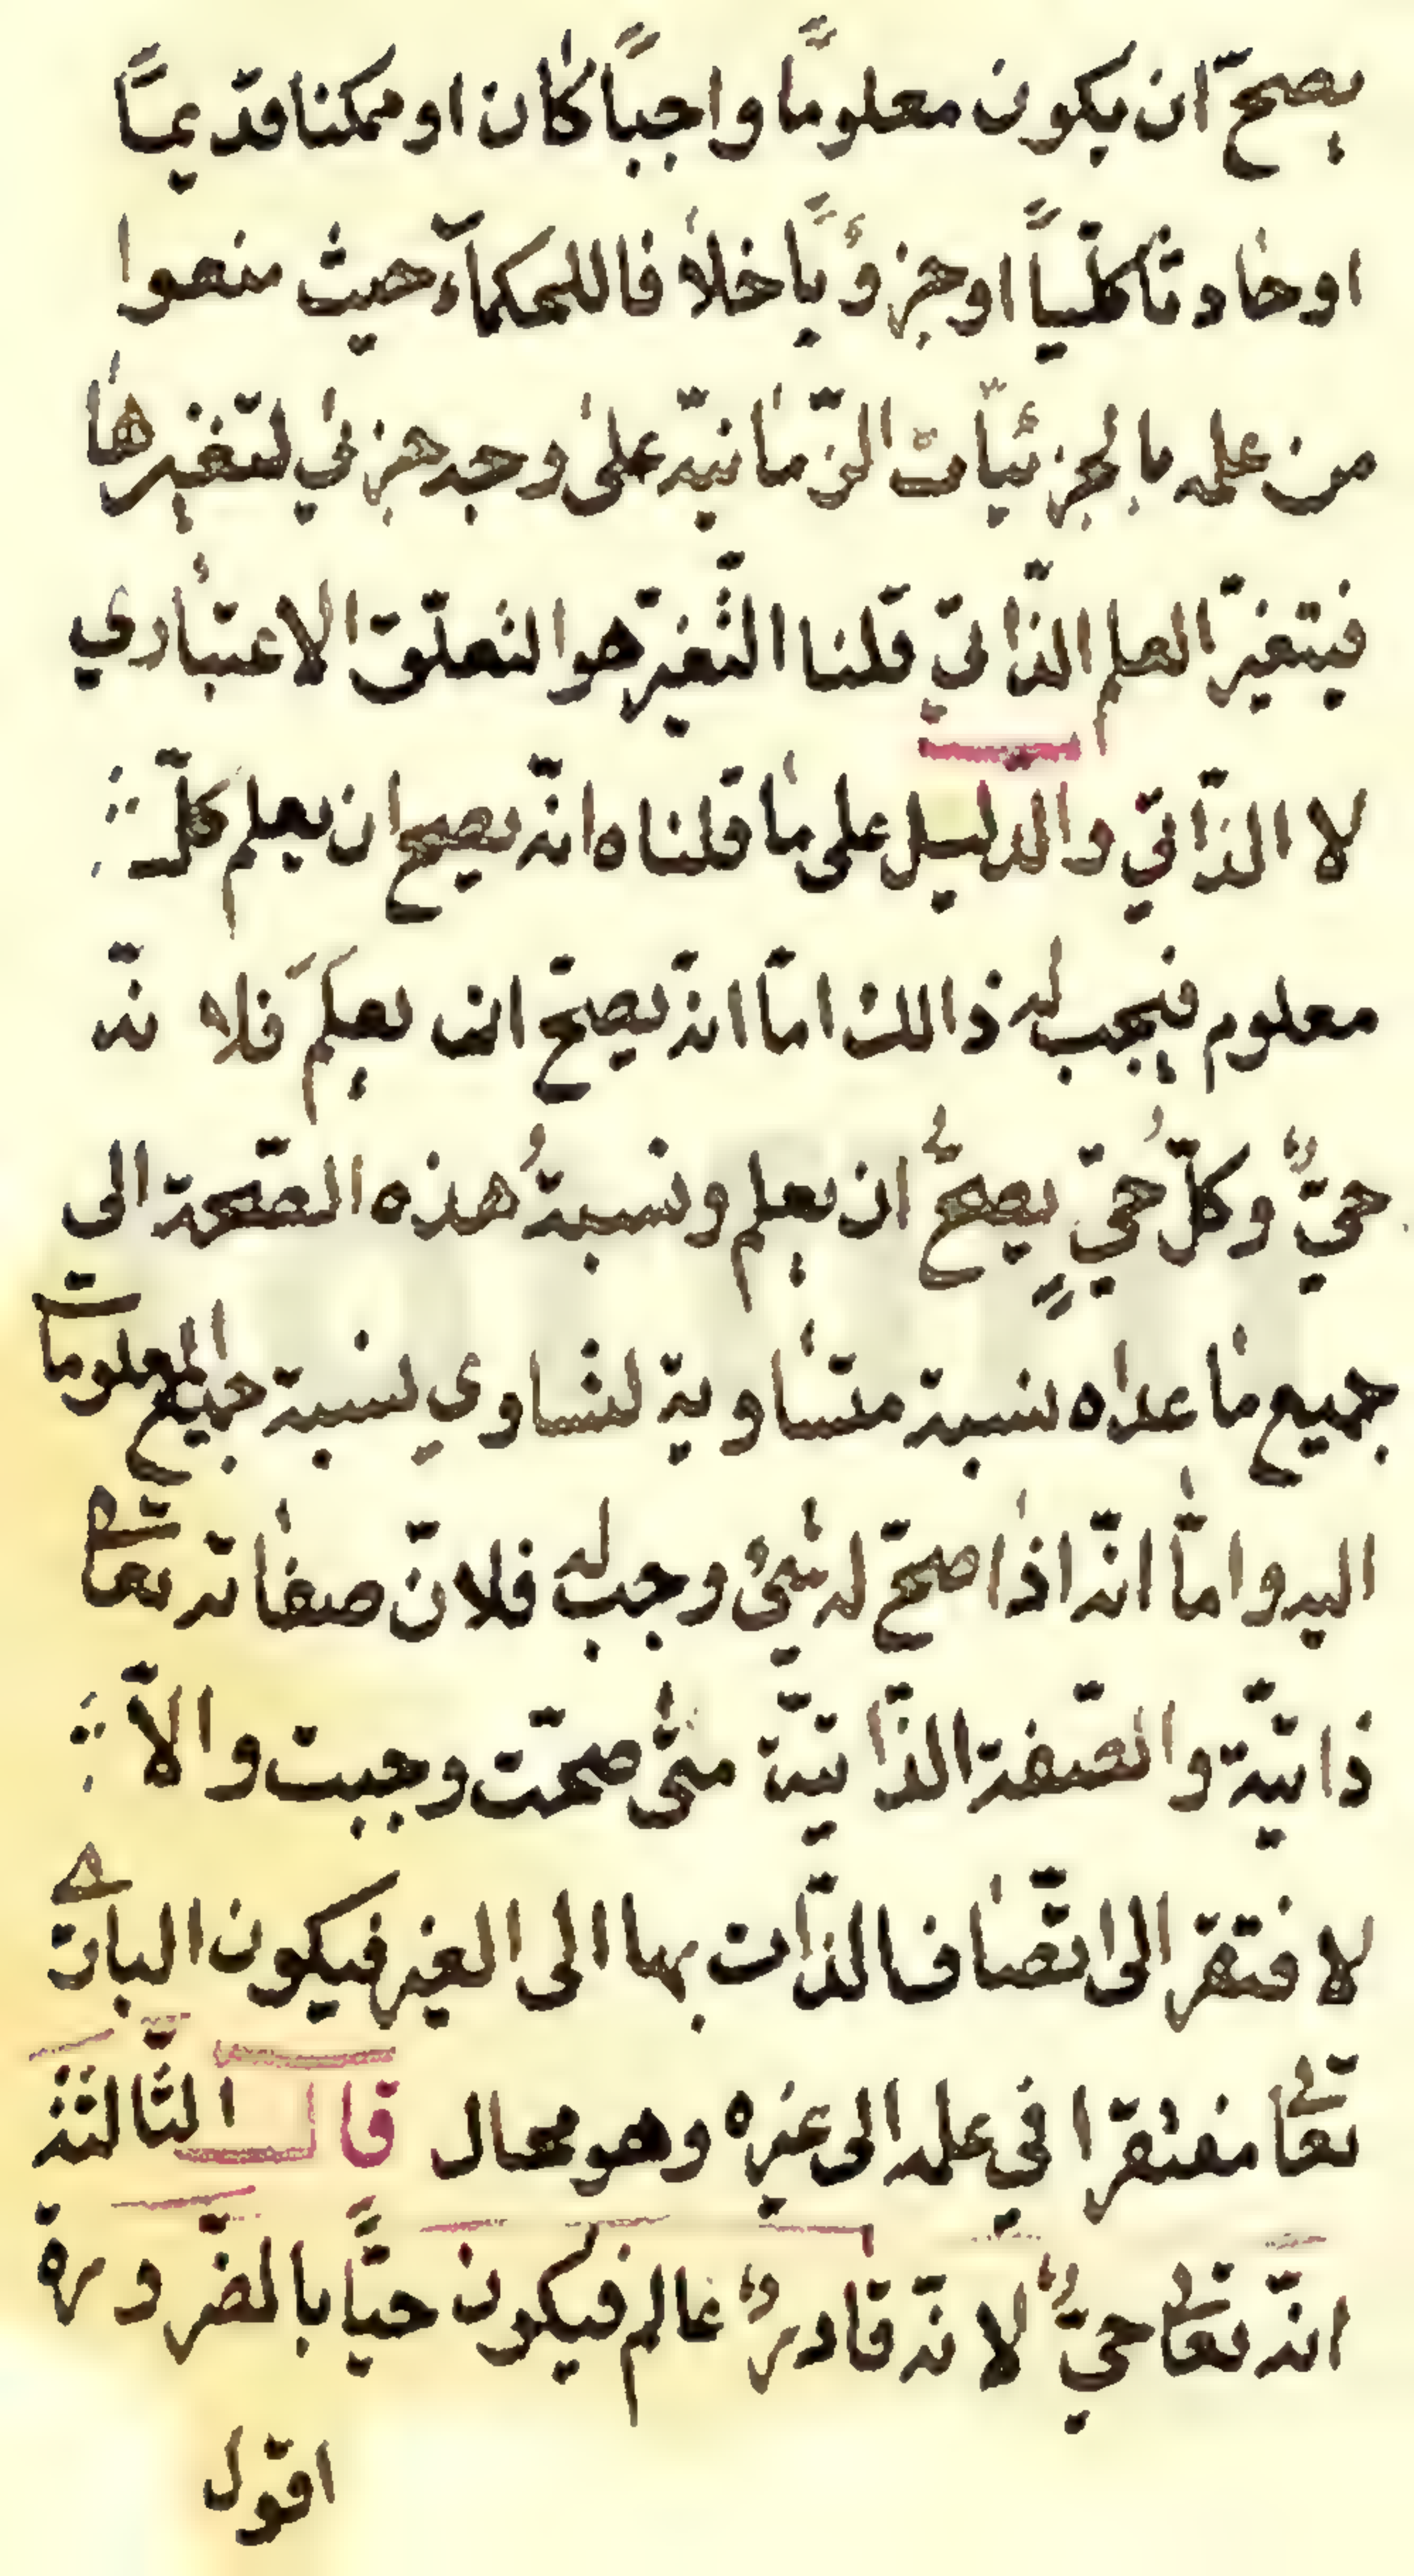 يصحّ ان يكون معلومًا واجبًا كان او ممكنا قديمًا
او حادثا كلّيًا او جزؤيًا خلافا للحكمآء حيث منعوا
من علمه بالجزئيّات الزّمانيّه على وجه جزئي لتغيرها
فيتغيّر العلم الذّاتي قلنا التّغيّر هو التعلّق الاعتباري
لا الذّاتي والدليل على ما قلناه انّه يصح ان يعلم كلّ
معلوم فيجب له ذالك امّا انّه يصحّ ان يعلمَ فلا نّه
حيٌّ وكلّ حيٍّ يصحُّ ان يعلم ونسبةُ هذه الصّحة الى
جميع ما عداه نسبة متساوية لتساوي نسبة جميع المعلومات
اليه وامّا انّه اذا صحّ له شئ وجب له فلانّ صفاته تعالى
ذاتيّة والصّفة الذّاتيّة متى صحّت وجبت والاّ
لافتقر الى اتّصاف الذّات بها الى الغير فيكون الباري
تعالى مفتقرا في علمه الى غيره وهو محال قال الثّالثة
انّه تعالى حيٌّ لانّه قادرٌ عالم فيكون حيًّا بالضّرورة
اقول